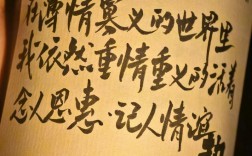 薄情寡义的世界里
我依然重情重义的活着
念人恩惠·记人情谊